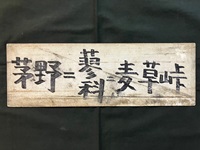 茅野=蓼科=麦草峠